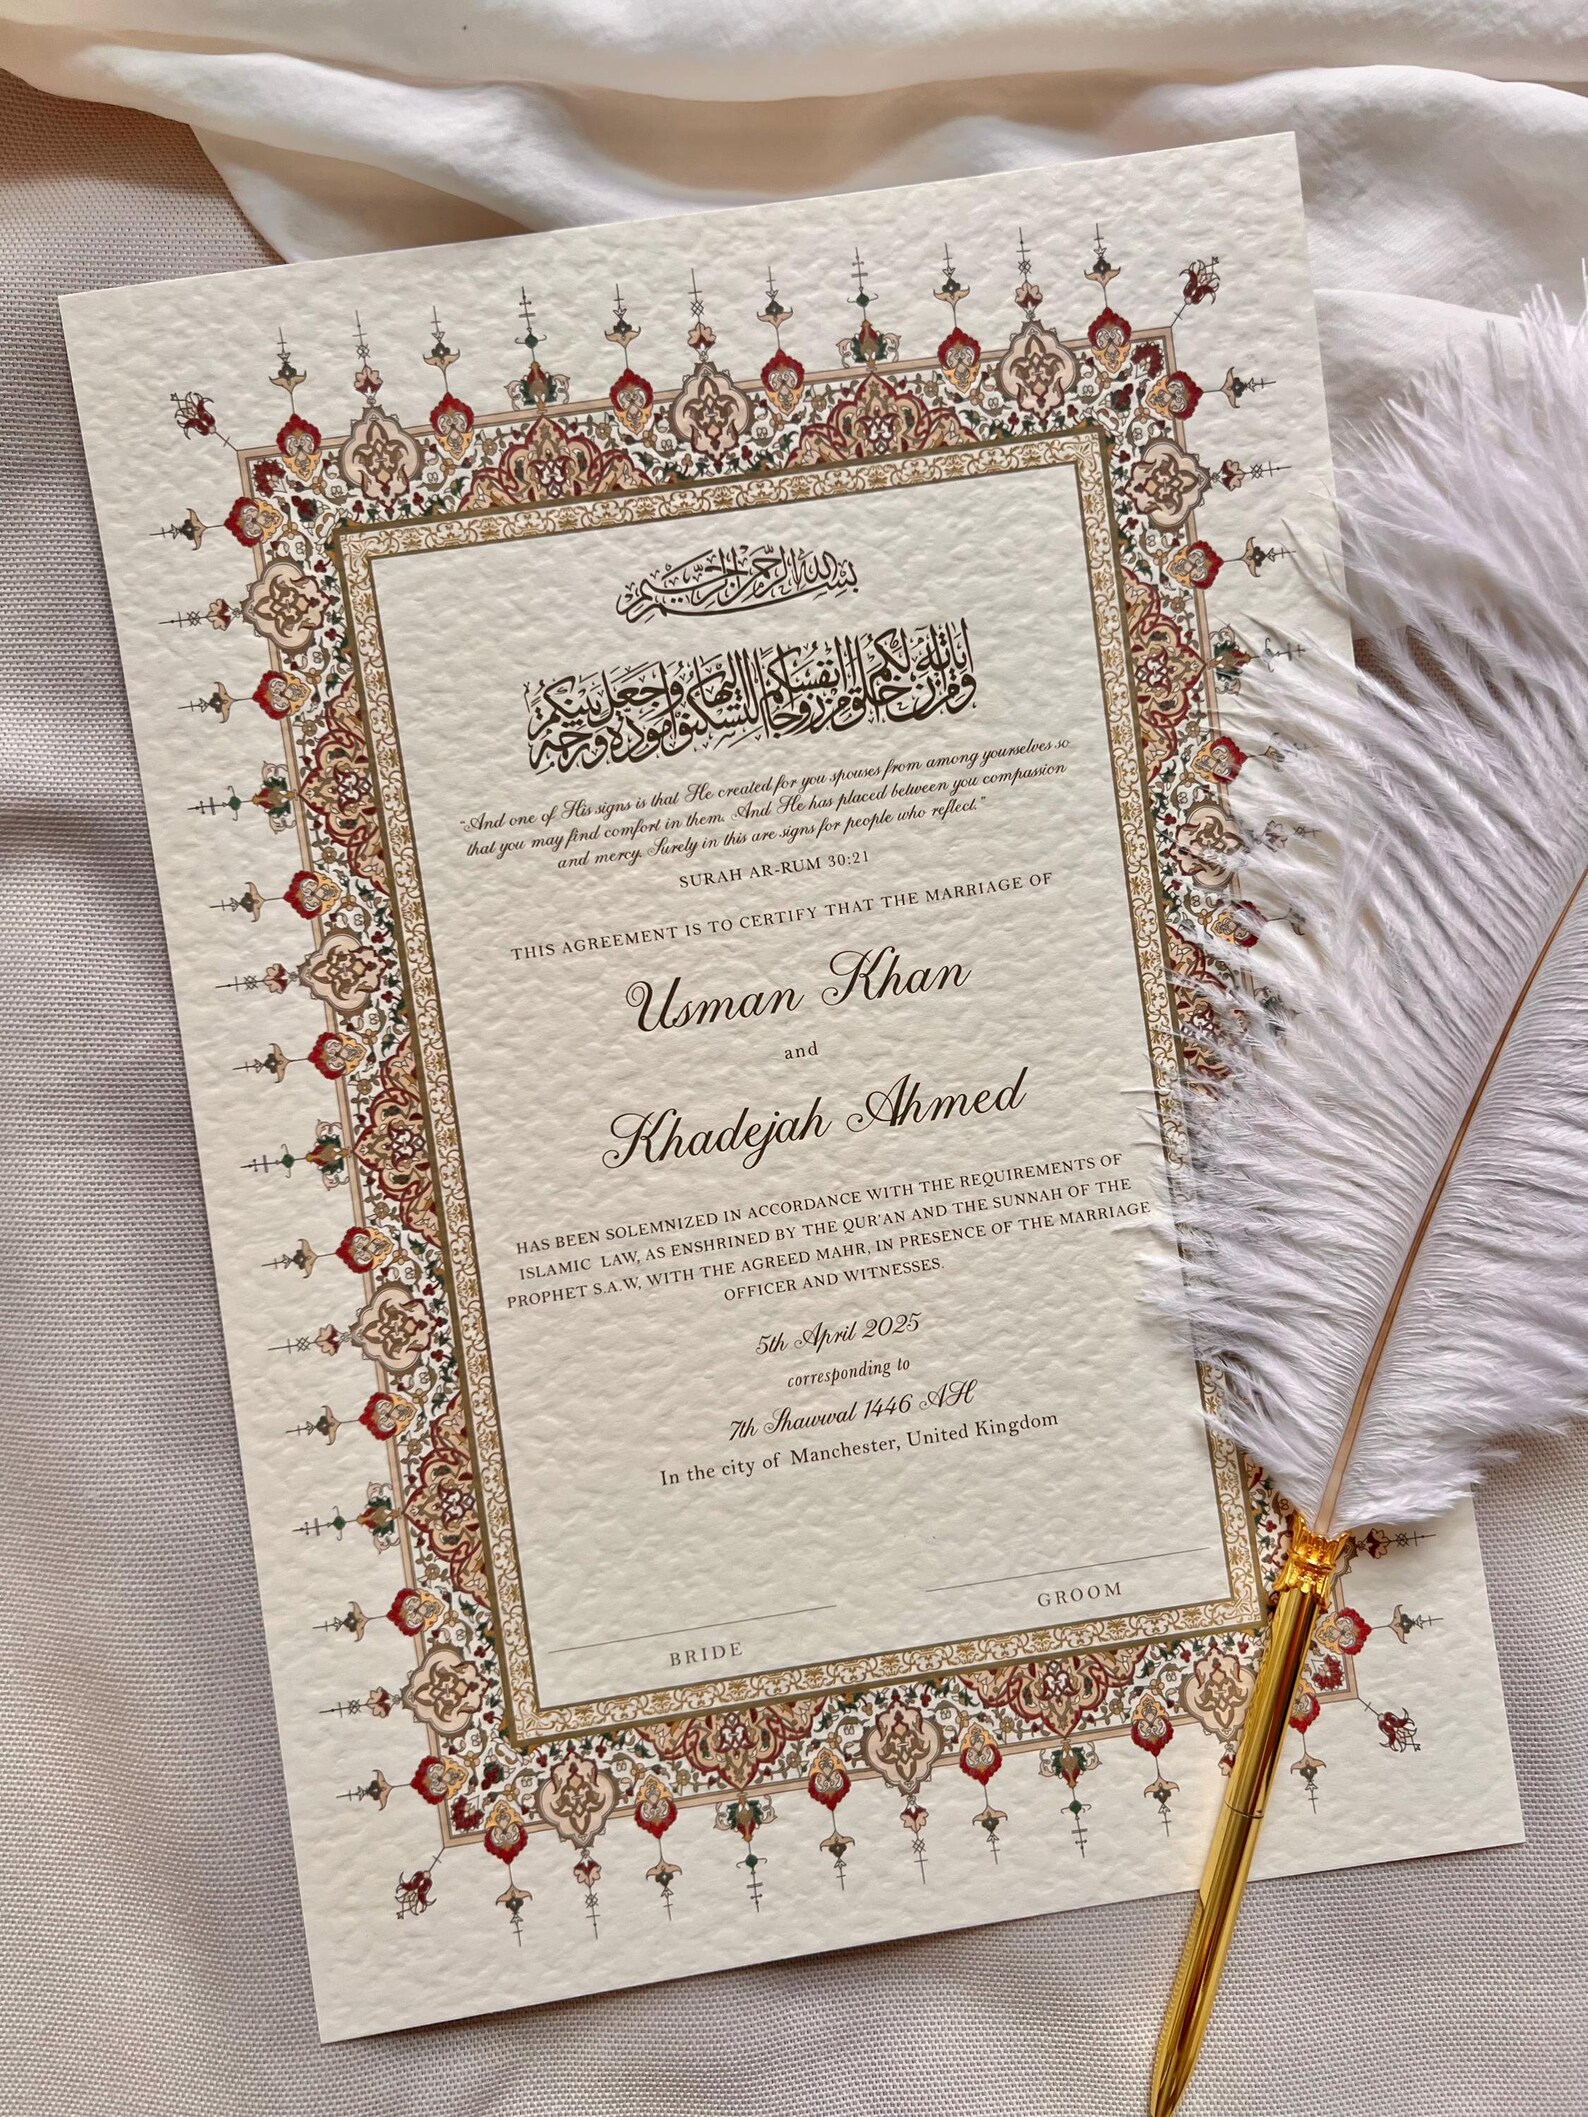 بسم الله الرحمن الرحيم
ومن آياته أن خلق لكم من أنفسكم أزواجا لتسكنوا إليها وجعل بينكم مودة ورحمة
"And one of His signs is that He created for you spouses from among yourselves so
that you may find comfort in them. And He has placed between you compassion
and mercy. Surely in this are signs for people who reflect."
SURAH AR-RUM 30:21
THIS AGREEMENT IS TO CERTIFY THAT THE MARRIAGE OF
Usman Khan
and
Khadejah Ahmed
HAS BEEN SOLEMNIZED IN ACCORDANCE WITH THE REQUIREMENTS OF
ISLAMIC LAW, AS ENSHRINED BY THE QUR'AN AND THE SUNNAH OF THE
PROPHET S.A.W, WITH THE AGREED MAHR, IN PRESENCE OF THE MARRIAGE
OFFICER AND WITNESSES.
5th April 2025
corresponding to
7th Shawwal 1446 AH
In the city of Manchester, United Kingdom
BRIDE
GROOM